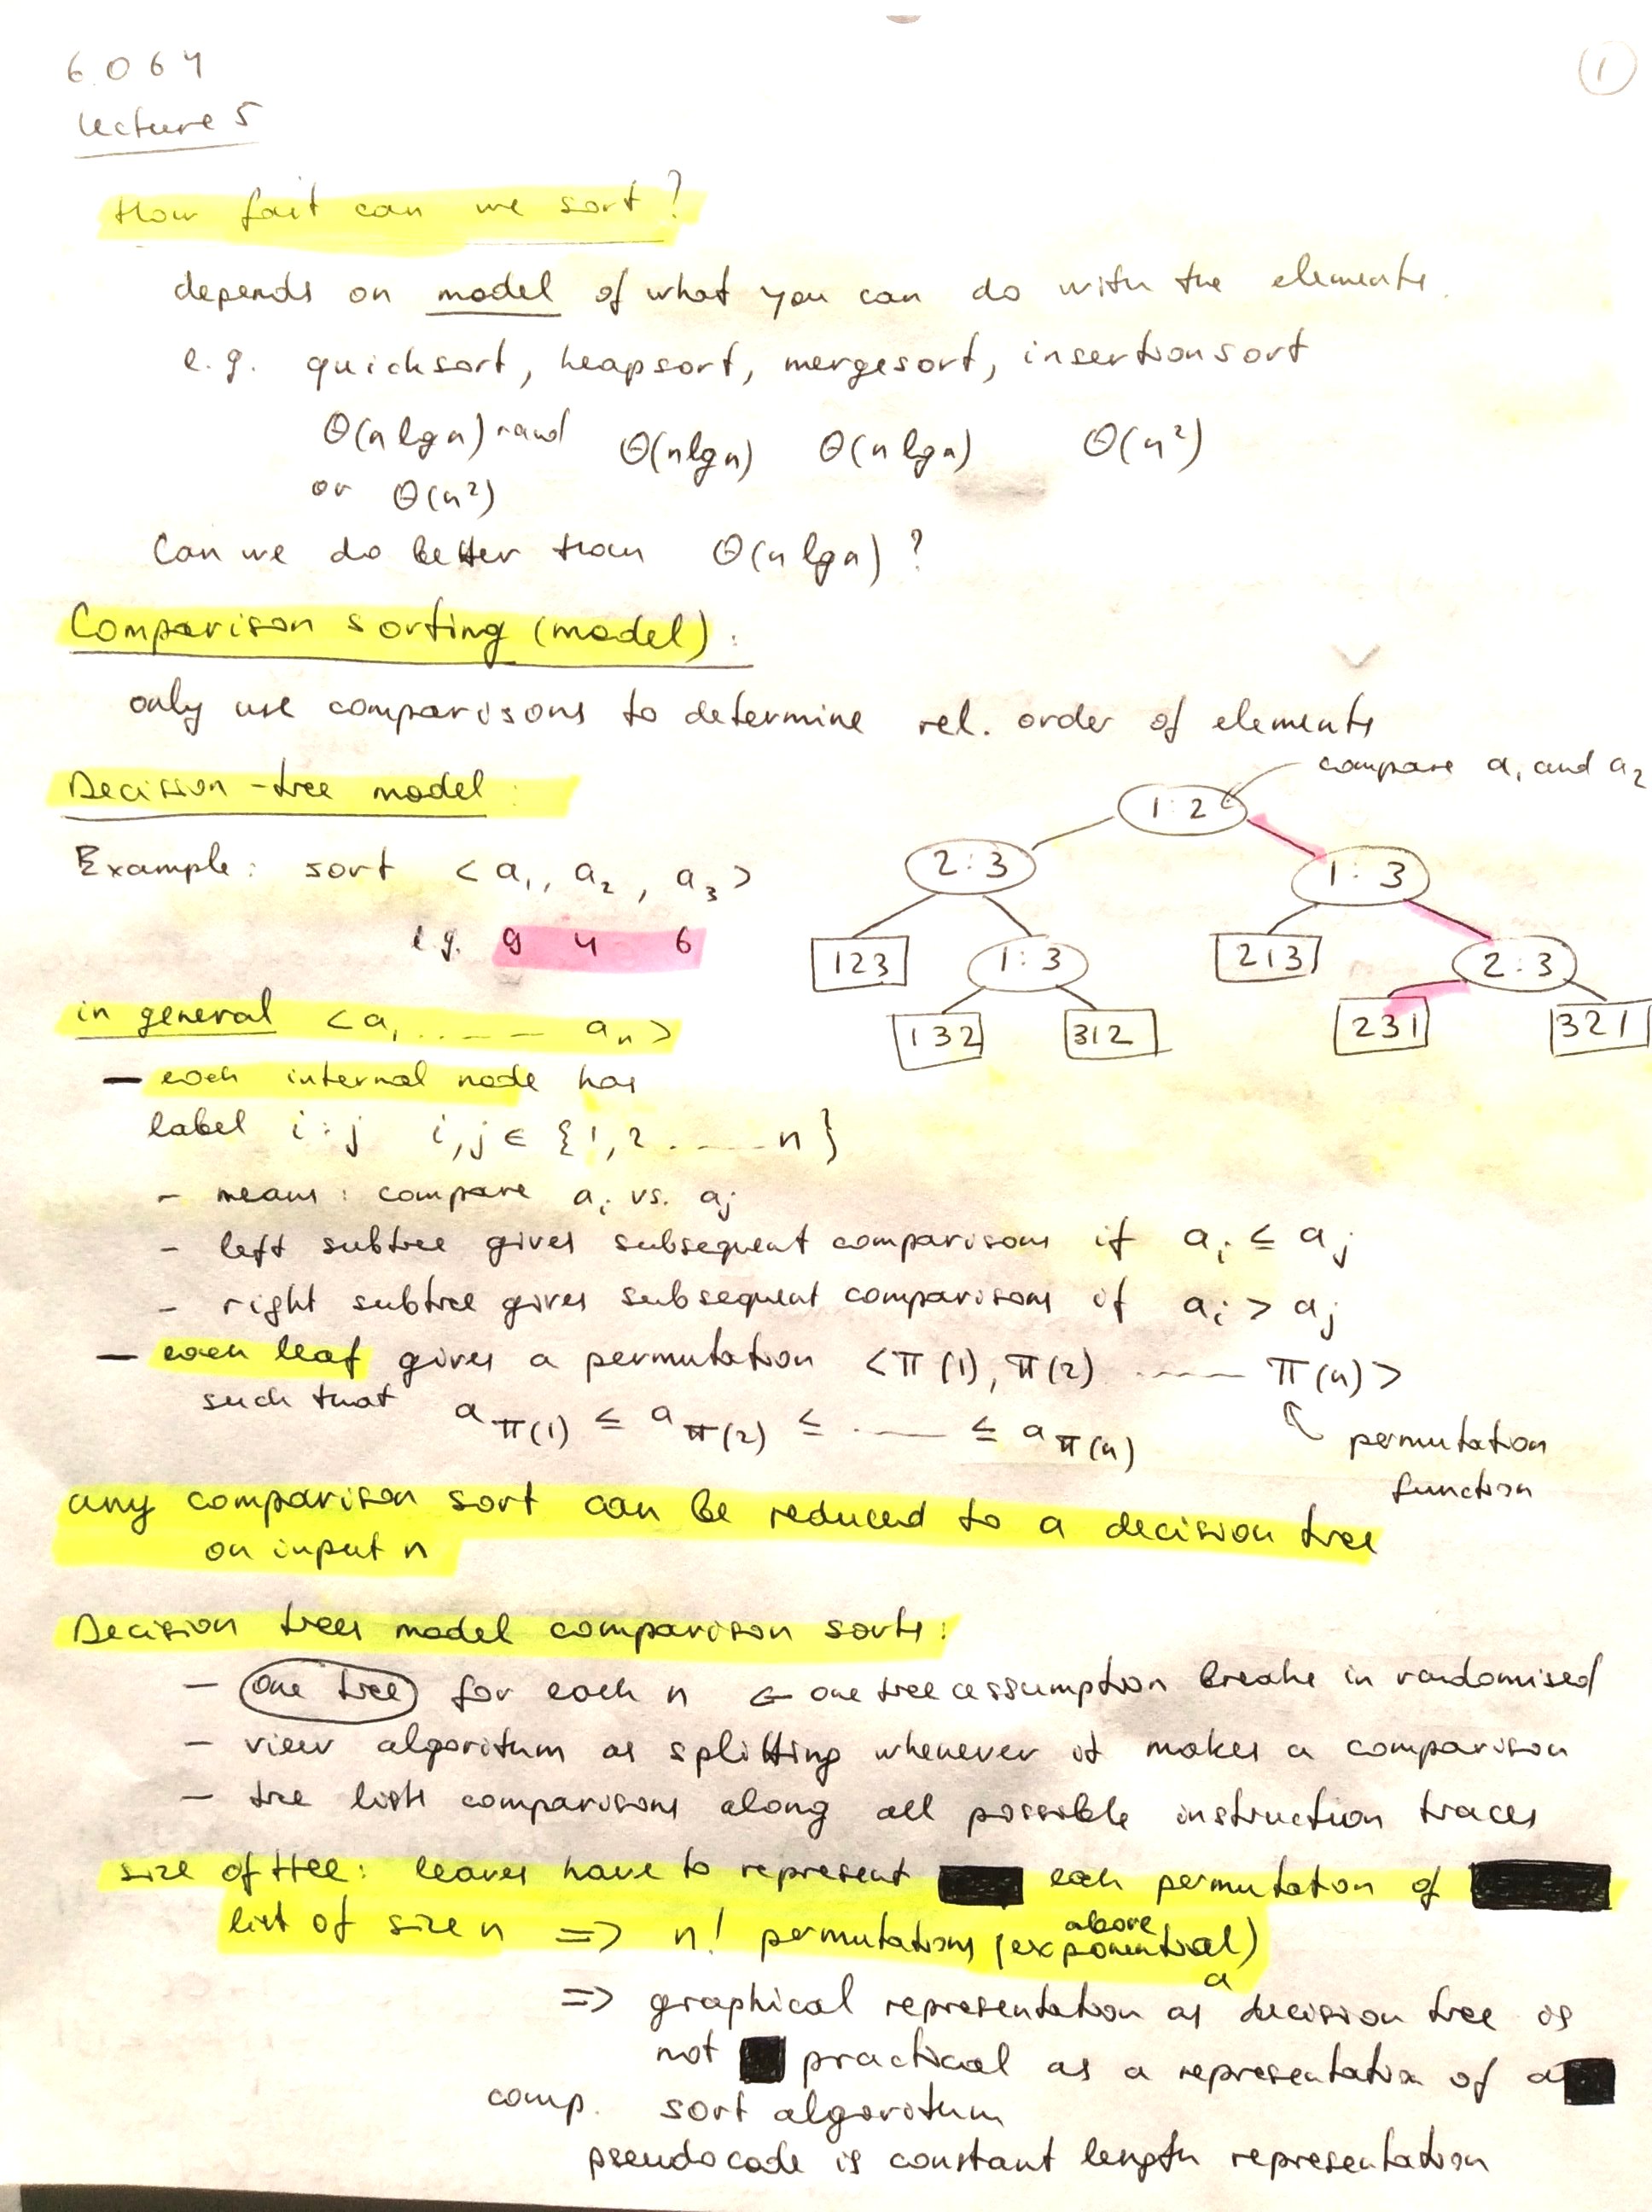 6.064
①
Lecture 5
How fast can we sort?
depends on model of what you can do with the elements.
e.g. quicksort, heapsort, mergesort, insertionsort
Θ(n lg n) rand Θ(n lg n) Θ(n lg n) Θ(n²)
or Θ(n²)
Can we do better than Θ(n lg n)?
Comparison sorting (model):
only use comparisons to determine rel. order of elements
compare a₁ and a₂
Decission-tree model:
1:2
Example: sort <a₁, a₂, a₃>
2:3 1:3
e.g. 9 4 6
123 1:3 213 2:3
132 312 231 321
in general <a₁ ..... aₙ>
- each internal node has
label i:j i,j ∈ {1,2 ..... n}
- means: compare aᵢ vs. aⱼ
- left subtree gives subsequent comparisons if aᵢ ≤ aⱼ
- right subtree gives subsequent comparisons if aᵢ > aⱼ
- each leaf gives a permutation <π(1), π(2) ..... π(n)>
such that a π(1) ≤ a π(2) ≤ ..... ≤ a π(n)
permutation
function
any comparison sort can be reduced to a decision tree
on input n
Decision trees model comparison sorts:
- one tree for each n ← one tree assumption breaks in randomised
- view algorithm as splitting whenever it makes a comparison
- tree lists comparisons along all possible instruction traces
size of tree: leaves have to represent each permutation of
list of size n => n! permutations (above exponential)
=> graphical representation as a decision tree is
not practical as a representation of a
comp. sort algorithm
pseudocode is constant length representation